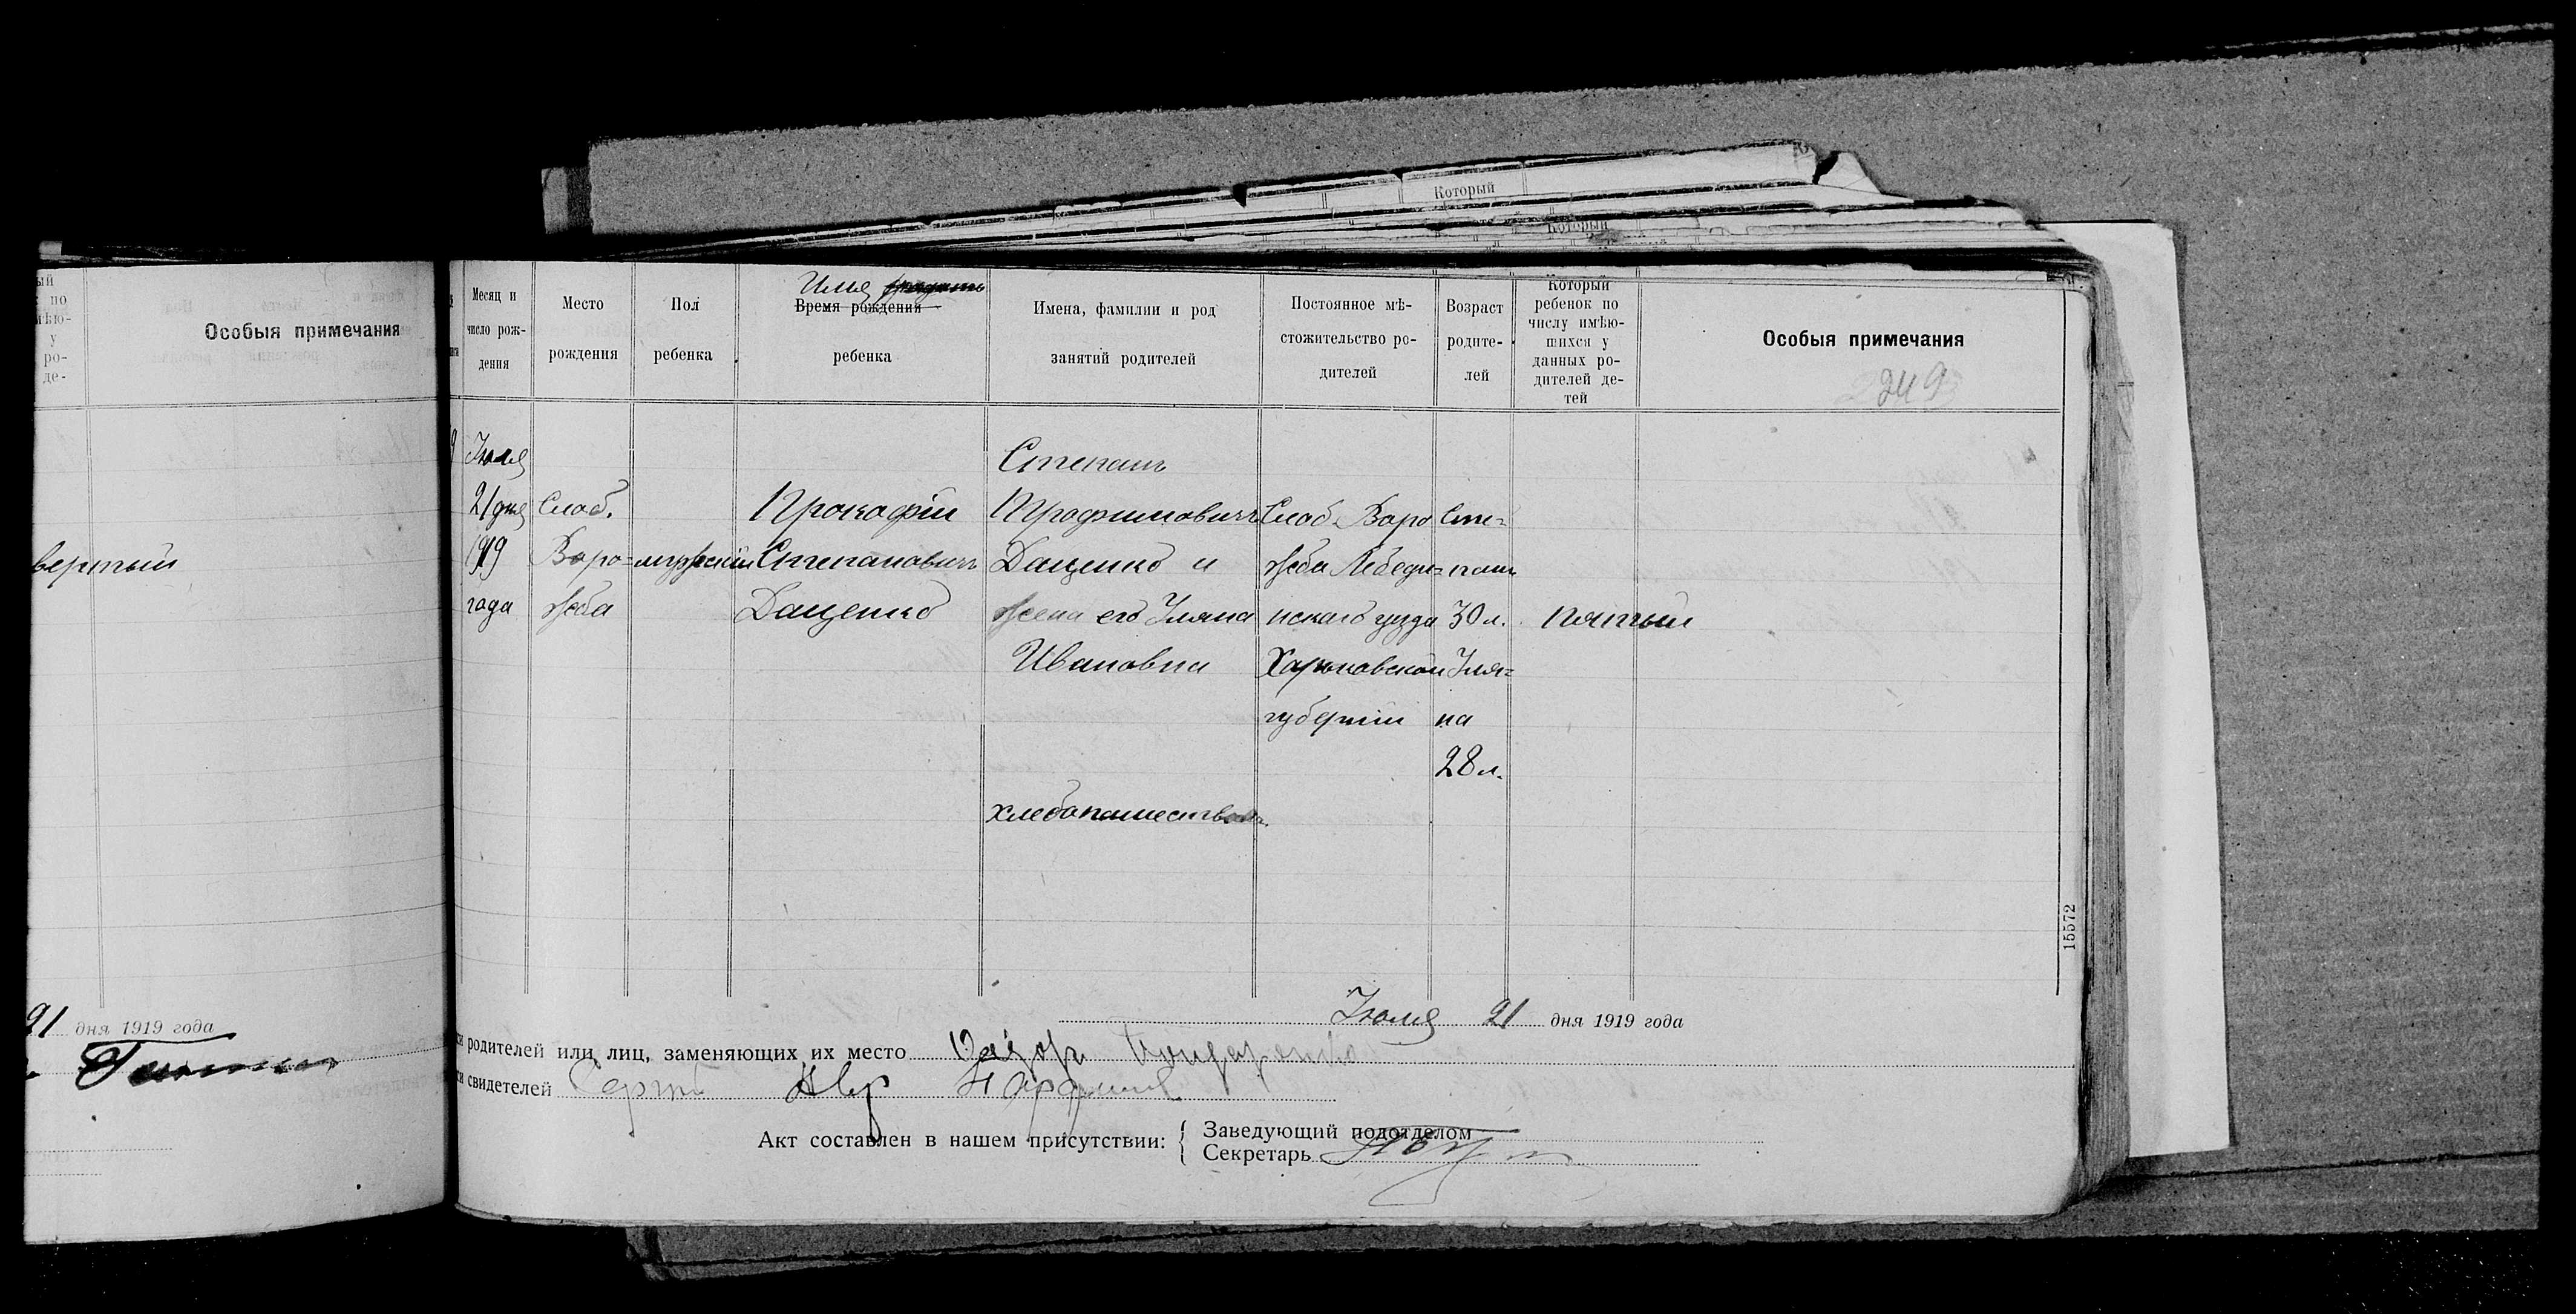 Который
Который
ый
по
мѣю-
у
ро-
де-
Особыя примечания
вертый
21 дня 1919 года
Имя
Месяц и число рож-дения
Место рождения
Пол ребенка
Время рождения ребенка
Имена, фамилии и род занятий родителей
Постоянное мѣ-стожительство ро-дителей
Возраст родите-лей
Который ребенок по числу имѣю-щихся у данных ро-дителей де-тей
Особыя примечания
249
Июля
21 дня
1919
года
Слоб.
Воро-
жба
мужской
Прокофій
Степановичъ
Даценко
Степанъ
Трофимовичъ
Даценко и
жена его Уляна
Ивановна
хлебопашество
Слоб. Воро
жба Лебеди-
нскаго уезда
Харьковской
губерніи
Сте-
панъ
30 л.
Уля-
на
28 л.
пятый
15572
Июля 21 дня 1919 года
родителей или лиц, заменяющих их место
свидетелей
Акт составлен в нашем присутствии:
Заведующий подотделом
Секретарь